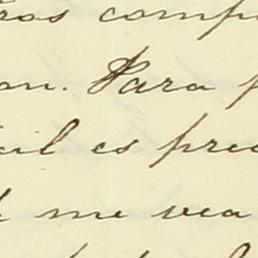 ros comp
on. Para p
cil es prec
me vea